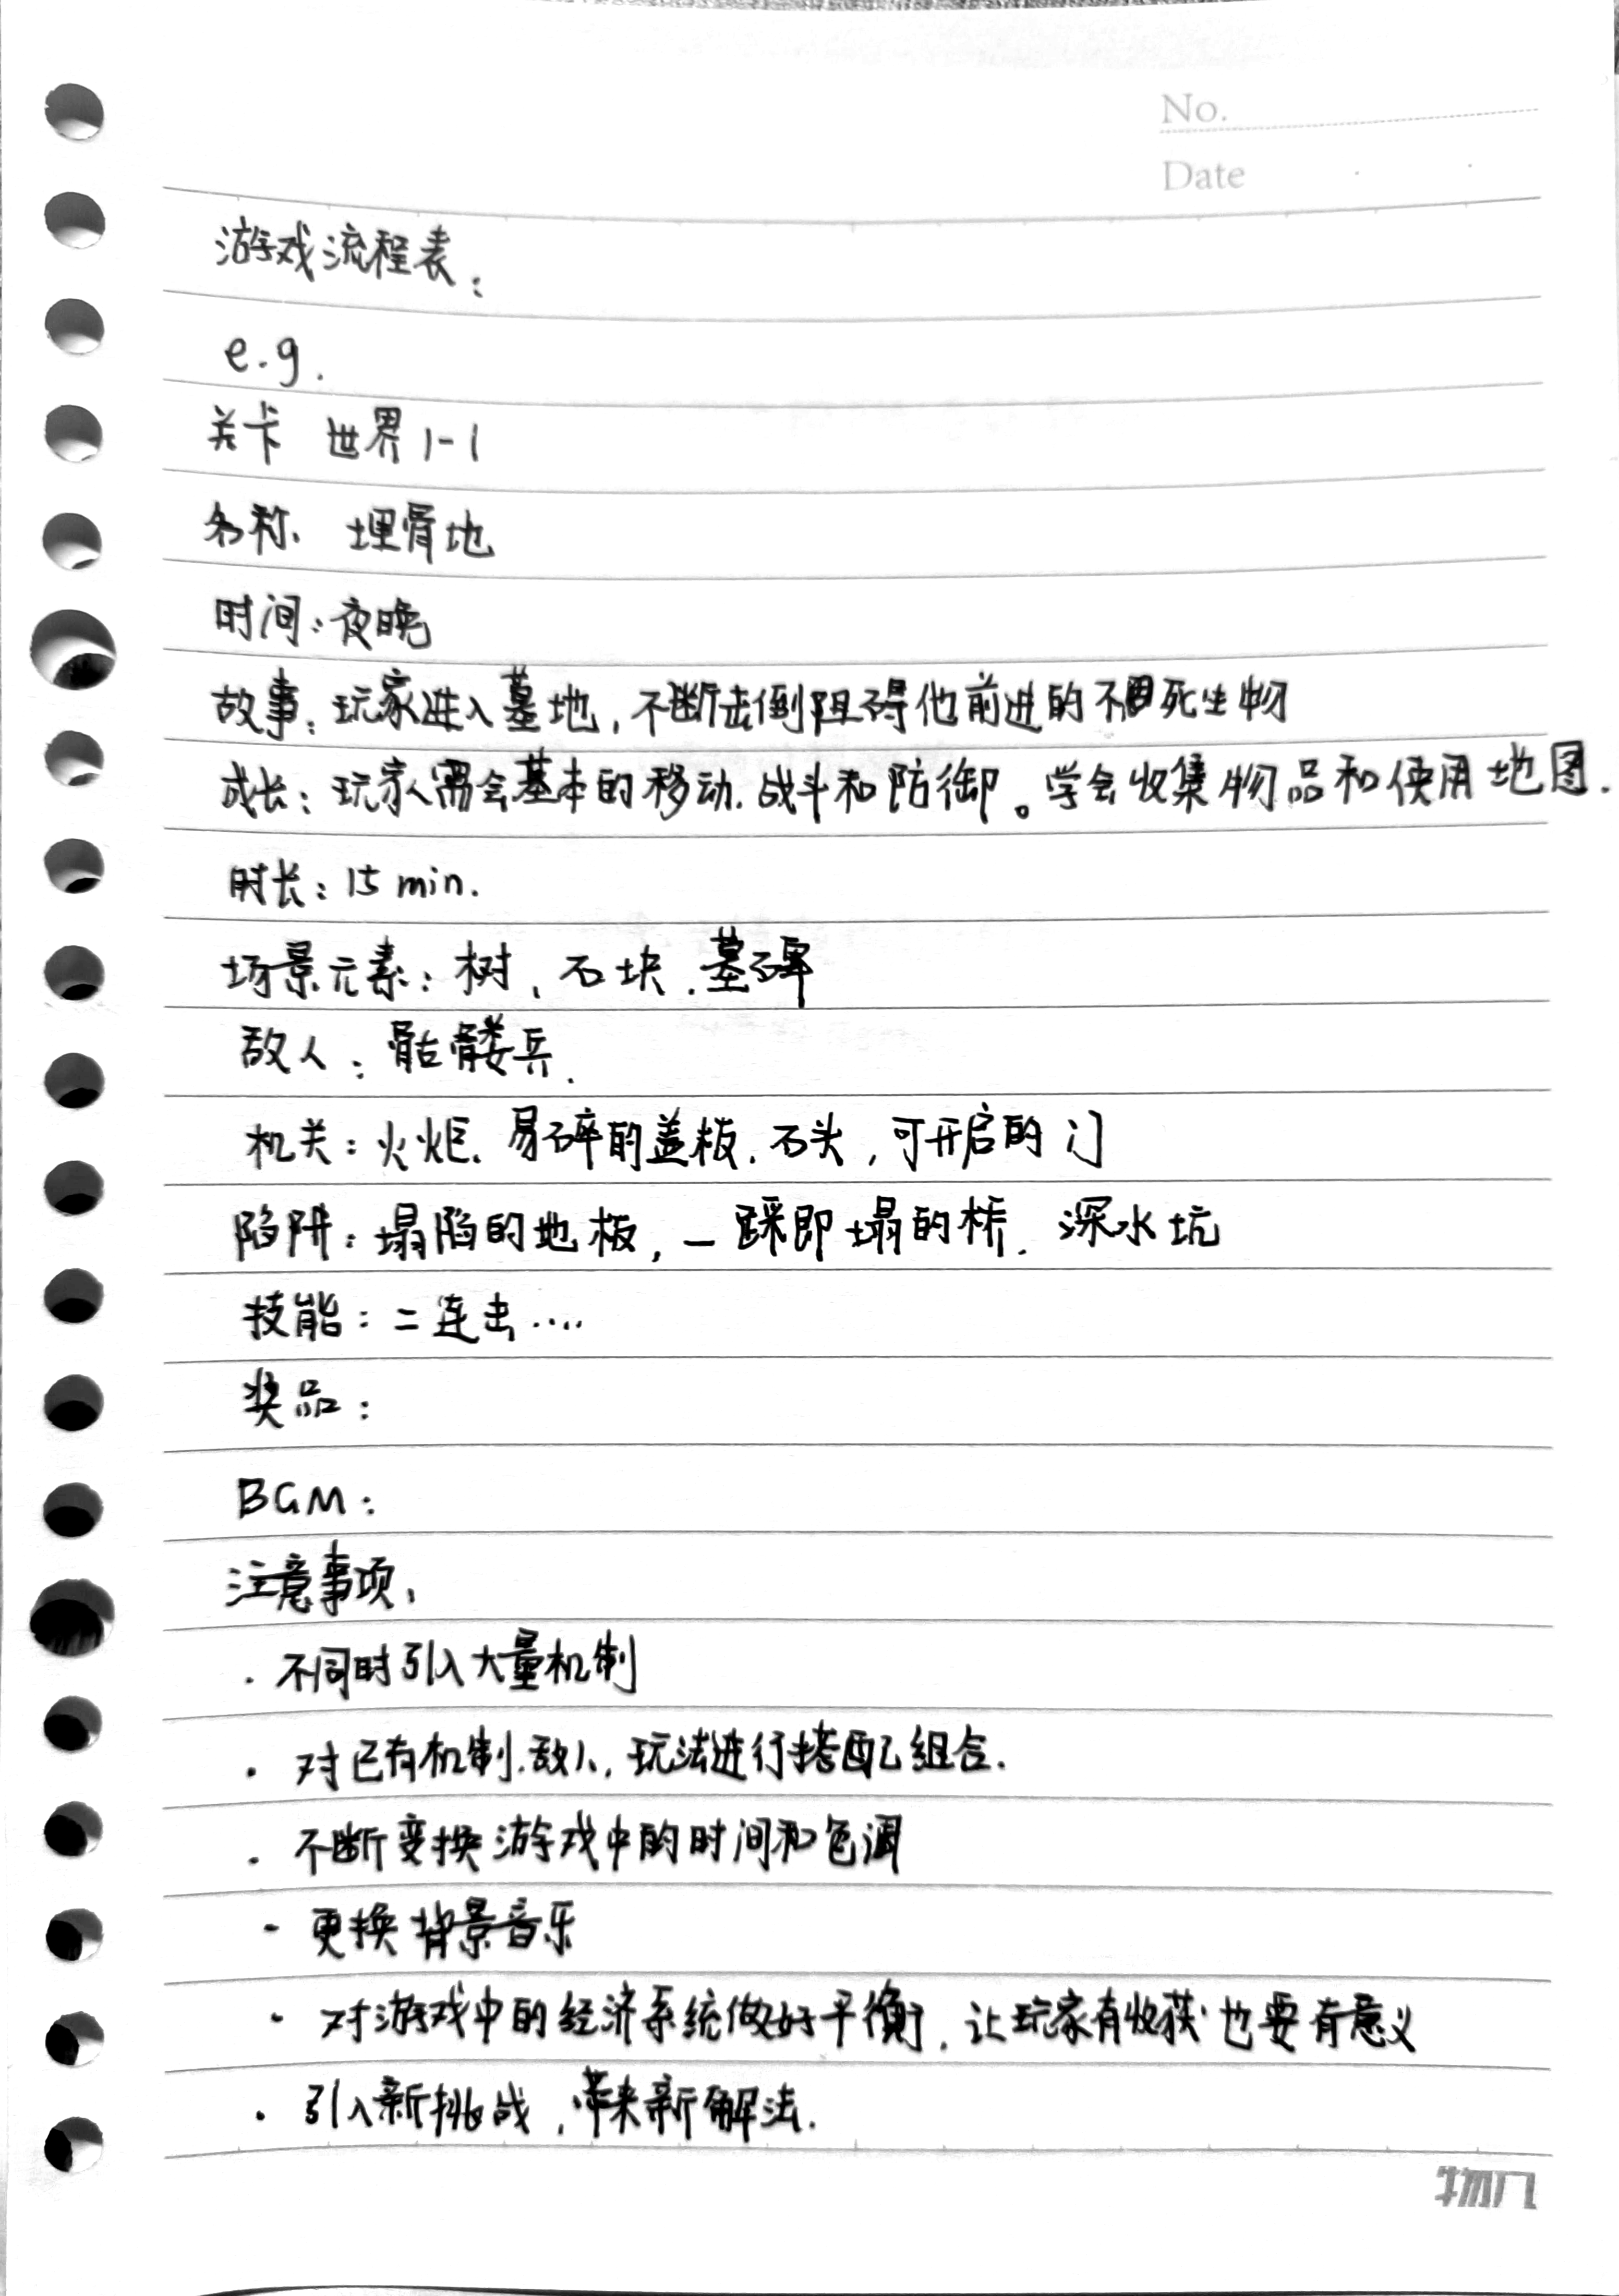 No.
Date
游戏流程表:
e.g.
关卡 世界1-1
名称、 埋骨地
时间:夜晚
故事:玩家进入墓地,不断击倒阻碍他前进的不死生物
成长:玩家需会基本的移动、战斗和防御。学会收集物品和使用地图.
时长:15 min.
场景元素:树、石块、墓碑
敌人:骷髅兵.
机关:火炬、易碎的盖板、石头,可开启的门
陷阱:塌陷的地板,一踩即塌的桥、深水坑
技能:二连击....
奖品:
BGM:
注意事项:
· 不同时引入大量机制
· 对已有机制、敌人、玩法进行搭配组合.
· 不断变换游戏中的时间和色调
- 更换背景音乐
· 对游戏中的经济系统做好平衡,让玩家有收获也要有意义
· 引入新挑战,带来新解法.
物几